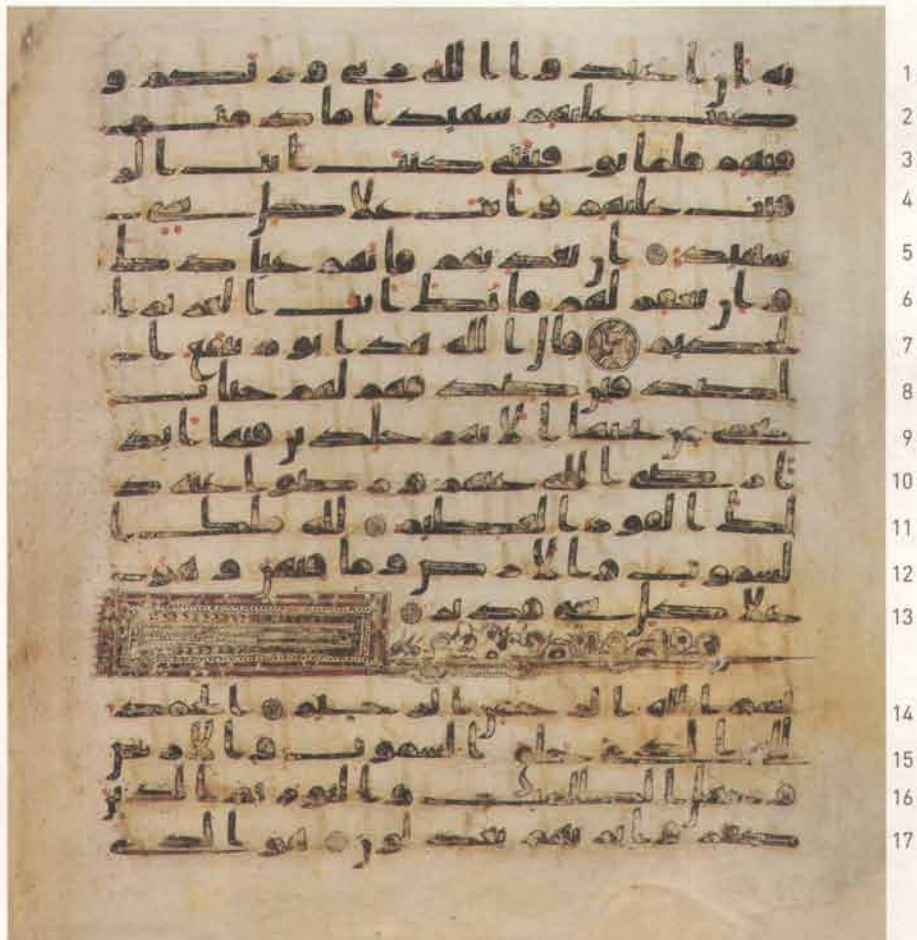 1 به ان اعبدوا الله ربي وربكم و
2 كنت عليهم شهيدا ما دمت
3 فيهم فلما توفيتني كنت انت الر
4 قيب عليهم وانت على كل شي
5 شهيد ان تعذبهم فانهم عبادك
6 وان تغفر لهم فانك انت العزيز ا
7 لحكيم قال الله هذا يوم ينفع ا
8 لصدقين صدقهم لهم جنت
9 تجري من تحتها الانهر خلدين فيها ابد
10 ا رضي الله عنهم ورضوا عنه ذ
11 لك الفوز العظيم لله ملك ا
12 لسموت والارض وما فيهن وهو
13 على كل شي قدير
14 بسم الله الرحمن الرحيم الحمد
15 لله الذي خلق السموت والارض
16 وجعل الظلمت والنور ثم الذين
17 كفروا بربهم يعدلون هو الذي